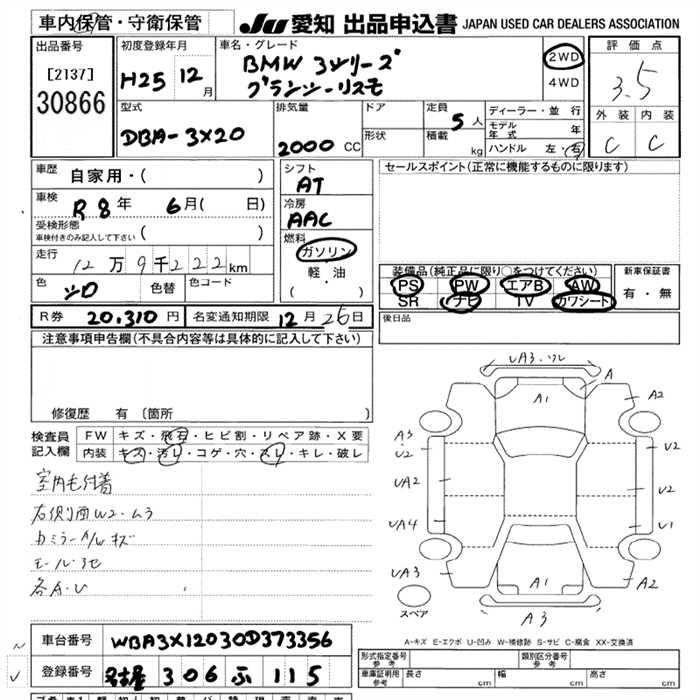 車内保管・守衛保管
JU 愛知 出品申込書 JAPAN USED CAR DEALERS ASSOCIATION
出品番号
[2137]
30866
初度登録年月
H25 12月
車名・グレード
BMW 3シリーズ
グランツーリスモ
2WD
4WD
評価点
3.5
外装 内装
C C
型式
DBA-3X20
排気量
2000 CC
ドア
形状
定員 5人
積載 kg
ディーラー・並行
モデル年式 年
ハンドル 左・右
車歴 自家用・( )
車検 R8年 6月( 日)
受検形態
車検付きのみ記入して下さい ( )
走行 12万9千222km
色 シロ 色替 色コード
シフト AT
冷房 AAC
燃料
ガソリン
軽・油
( ・ )
セールスポイント(正常に機能するものに限ります)
装備品(純正品に限り○をつけてください)
PS PW エアB AW
SR ナビ TV カワシート
新車保証書
有・無
R券 20,310円 名変通知期限 12月26日
後日品
注意事項申告欄(不具合内容等は具体的に記入して下さい)
修復歴 有 〔箇所
検査員記入欄
FW キズ・飛石・ヒビ割・リペア跡・X要
内装 キズ・汚レ・コゲ・穴・スレ・キレ・破レ
室内毛付着
右側面W2・ムラ
カミラーA/Wキズ
モール劣化
各A・U
UA3・ワレ
A
A1
A2
A3
U2
U2
UA2
UA4
U1
UA3
A1
A2
A3
スペア
A-キズ E-エクボ U-凹み W-補修跡 S-サビ C-腐食 XX-交換済
車台番号 WBA3X12030D373356
登録番号 名古屋 306 ふ 115
形式指定番号
参考
類別区分番号
参考
車庫証明用
参考
長さ cm 幅 cm 高さ cm